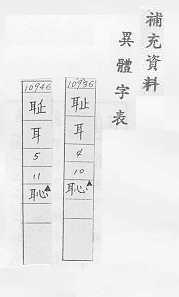 補充資料
異體字表
10936
耻
耳
4
10
恥▲
10946
耳
5
11
恥▲